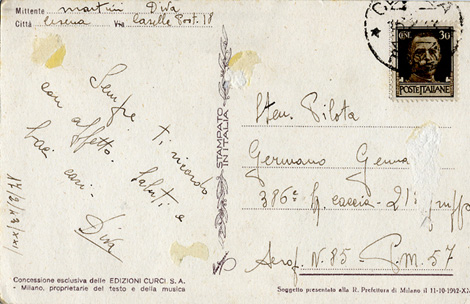 Mittente Martini Diva
Città Cesena Via Caselle Post. 18
CENT. 30
POSTE ITALIANE
Sempre ti ricordo
con affetto. Saluti e
baci cari.
Diva
STAMPATO
IN ITALIA
Sten. Pilota
Germano Genna
386ª Sq. caccia - 21º gruppo
Aerop. N. 85 - P.M. 57
Concessione esclusiva delle EDIZIONI CURCI S. A.
- Milano, proprietarie del testo e della musica
Soggetto presentato alla R. Prefettura di Milano il 11-10-1942-X